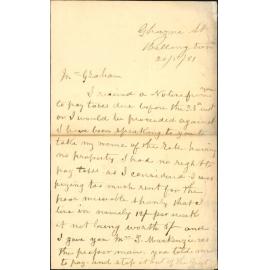 Ghuznee St
Wellington
20/1/81
Mr Graham
I received a Notice from you
to pay taxes due before the 23rd inst
or I would be proceeded against
I have been speaking to you to
take my name of the Rate having
no property I had no right to
pay taxes as I considered I was
paying too much rent for the
poor miserable shanty that I
live in namely 10/- per week
it not being worth 5/- and
I gave you Mr T. MacKenzie as
the proper man you told me
to pay and stop it out of the Rent